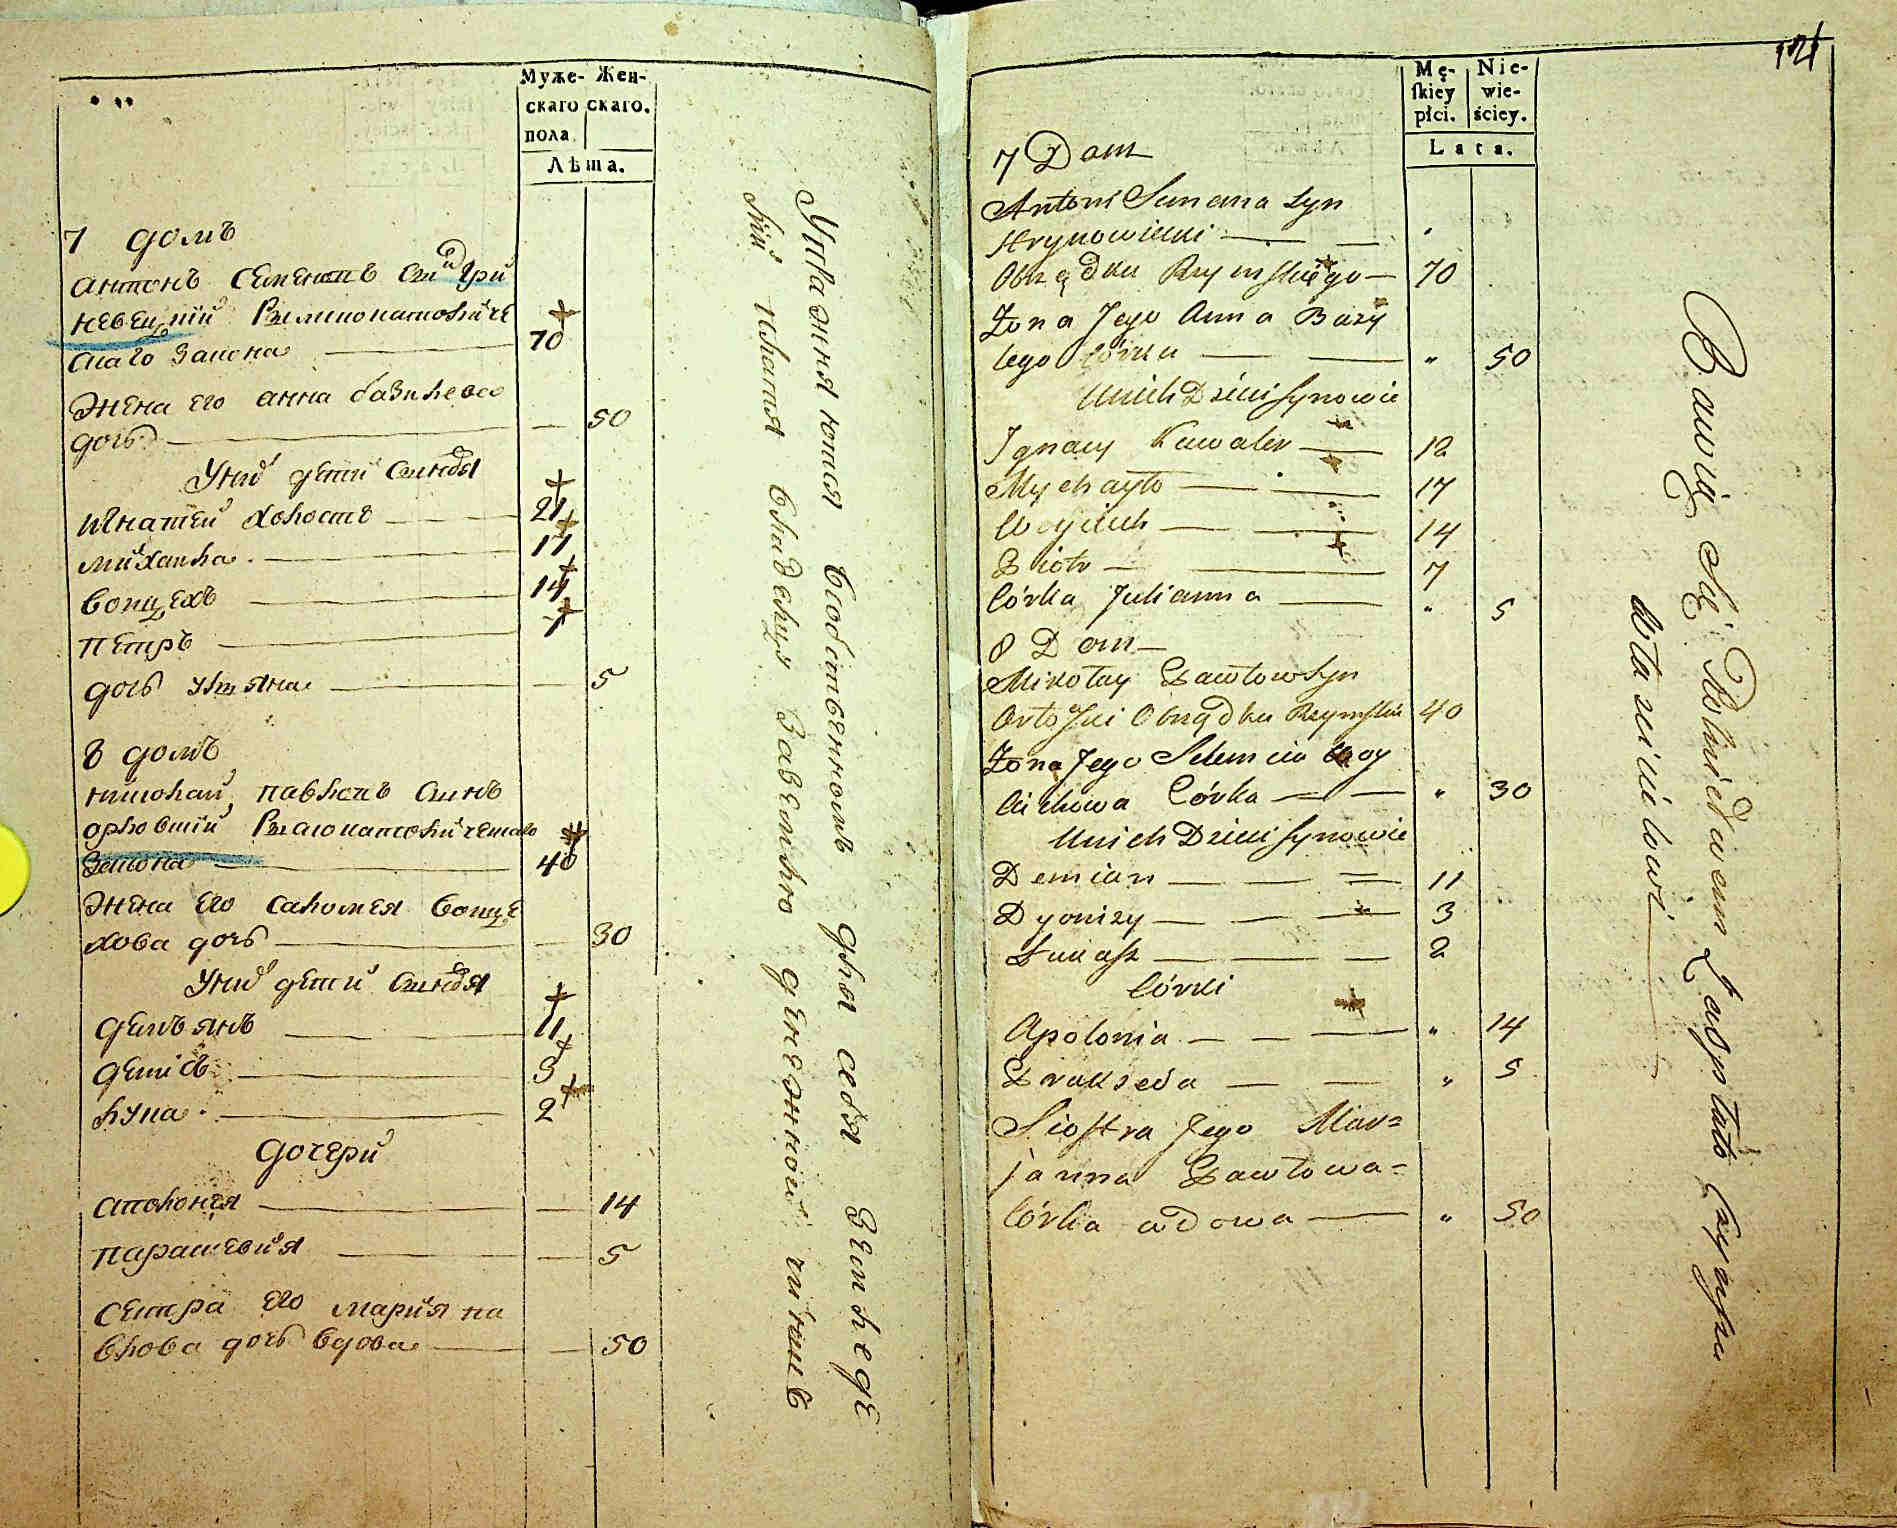 Муже- Жен-
скаго скаго.
пола
Лѣта.
7 домъ
антонъ семеновъ синъ стри
невецкий Римлио католиче
скаго закона 70
жена его анна базилева
дочь 50
У них дети синовя
игнатей холостъ 21
михаила 17
воицехъ 14
петръ 7
дочь улияна 5
8 домъ
николай павловъ синъ
орловский Римо католическаго
закона 40
жена его саломея воице
хова дочь 30
У них дети синовя
демъянъ 11
денисъ 3
лука 2
дочери
аполония 14
парасковия 5
сестра его мария па
влова дочь вдова 50
Упражняются собственнымъ для себя земледе
лий пахатя владельцу заземлю денежной чиншъ
121
Mę- Nie-
skiey wie-
płci. ściey.
Lata.
7 Dom
Antoni Semena syn
Strynowiecki
Obrządku Rzymskiego 70
Żona Jego Anna Bazy
lego Córka „ 50
U nich Dzieci synowie
Ignacy Kawaler 12
Mychayło 17
Woyciech 14
Piotr 7
Córka Julianna „ 5
8 Dom
Mikołay Pawłow syn
Orłoski Obrządku Rzymskie 40
Żona Jego Selemeia Woy
ciechowa Córka „ 30
U nich Dzieci synowie
Demian 11
Dyonizy 3
Łukasz 2
Córki
Apolonia „ 14
Prakseda „ 5
Siostra Jego Mar=
janna Pawłowa=
Córka wdowa „ 50
Bawią się Rolnictwem Zaś płacą czynszu
Właścicielowi